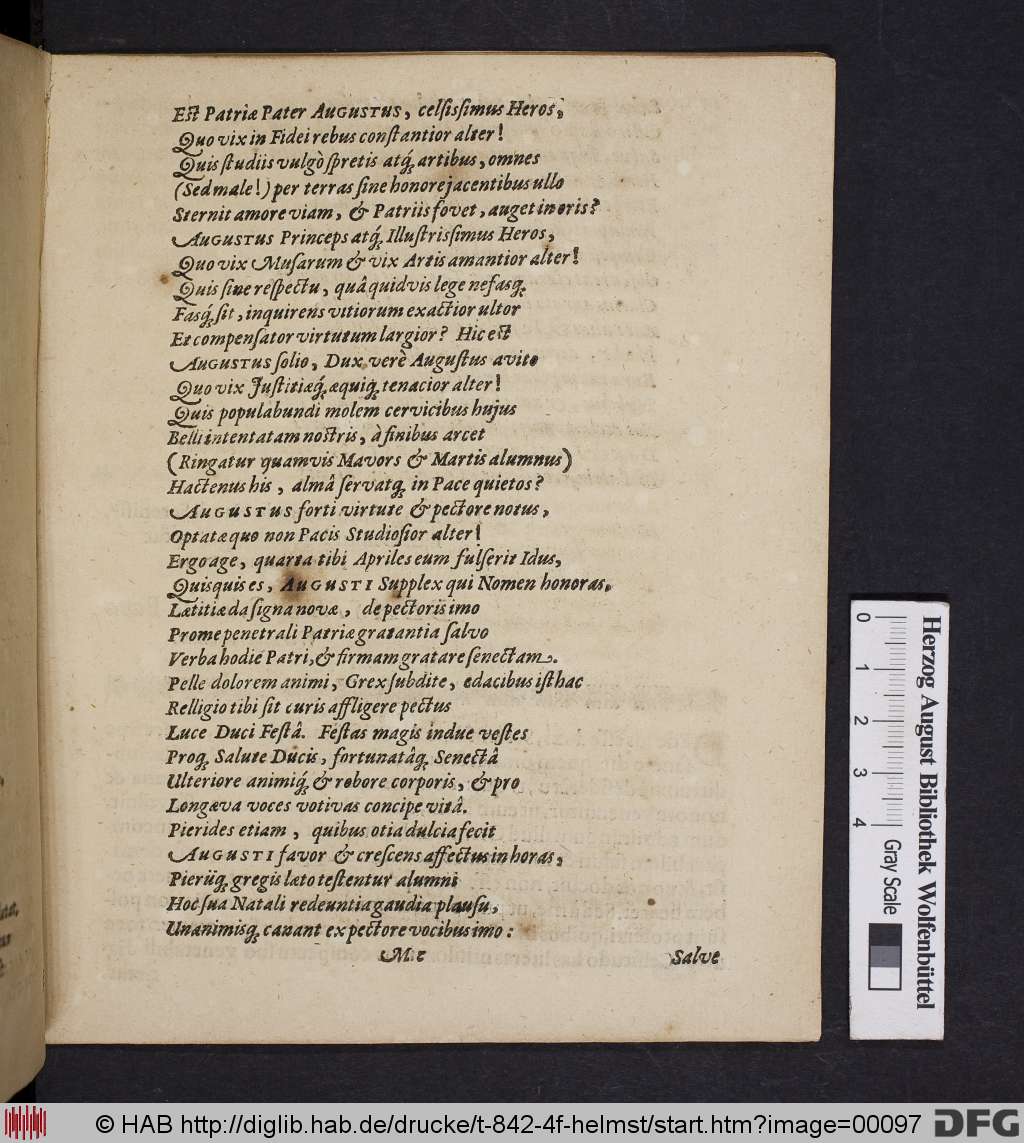 Est Patriæ Pater AUGUSTUS, celsissimus Heros,
Quo vix in Fidei rebus constantior alter!
Quis studiis vulgò spretis atq́; artibus, omnes
(Sed male!) per terras sine honore jacentibus ullo
Sternit amore viam, & Patriis fovet, auget in oris?
AUGUSTUS Princeps atq́; Illustrissimus Heros,
Quo vix Musarum & vix Artis amantior alter!
Quis sine respectu, quâ quidvis lege nefasq́;
Fasq́; sit, inquirens vitiorum exactior ultor
Et compensator virtutum largior? Hic est
AUGUSTUS solio, Dux verè Augustus avito
Quo vix Justitiæq́; æquiq́; tenacior alter!
Quis populabundi molem cervicibus hujus
Belli intentatam nostris, à finibus arcet
(Ringatur quamvis Mavors & Martis alumnus)
Hactenus his, almâ servatq́; in Pace quietos?
AUGUSTUS forti virtute & pectore notus,
Optatæ quo non Pacis Studiosior alter!
Ergo age, quarta tibi Apriles eum fulserit Idus,
Quisquis es, AUGUSTI Supplex qui Nomen honoras,
Lætitiæ da signa novæ, de pectoris imo
Prome penetrali Patriæ gratantia salvo
Verba hodie Patri, & firmam gratare senectam.
Pelle dolorem animi, Grex subdite, edacibus isthac
Relligio tibi sit curis affligere pectus
Luce Duci Festâ. Festas magis indue vestes
Proq́; Salute Ducis, fortunatâq́; Senectâ
Ulteriore animiq́; & robore corporis, & pro
Longæva voces votivas concipe vitâ.
Pierides etiam, quibus otia dulcia fecit
AUGUSTI favor & crescens affectus in horas,
Pieriiq́; gregis læto testentur alumni
Hoc sua Natali redeuntia gaudia plausu,
Unanimisq́; canant ex pectore vocibus imo:
M 2 Salve
Herzog August Bibliothek Wolfenbüttel
0 1 2 3 4 Gray Scale
© HAB http://diglib.hab.de/drucke/t-842-4f-helmst/start.htm?image=00097
DFG